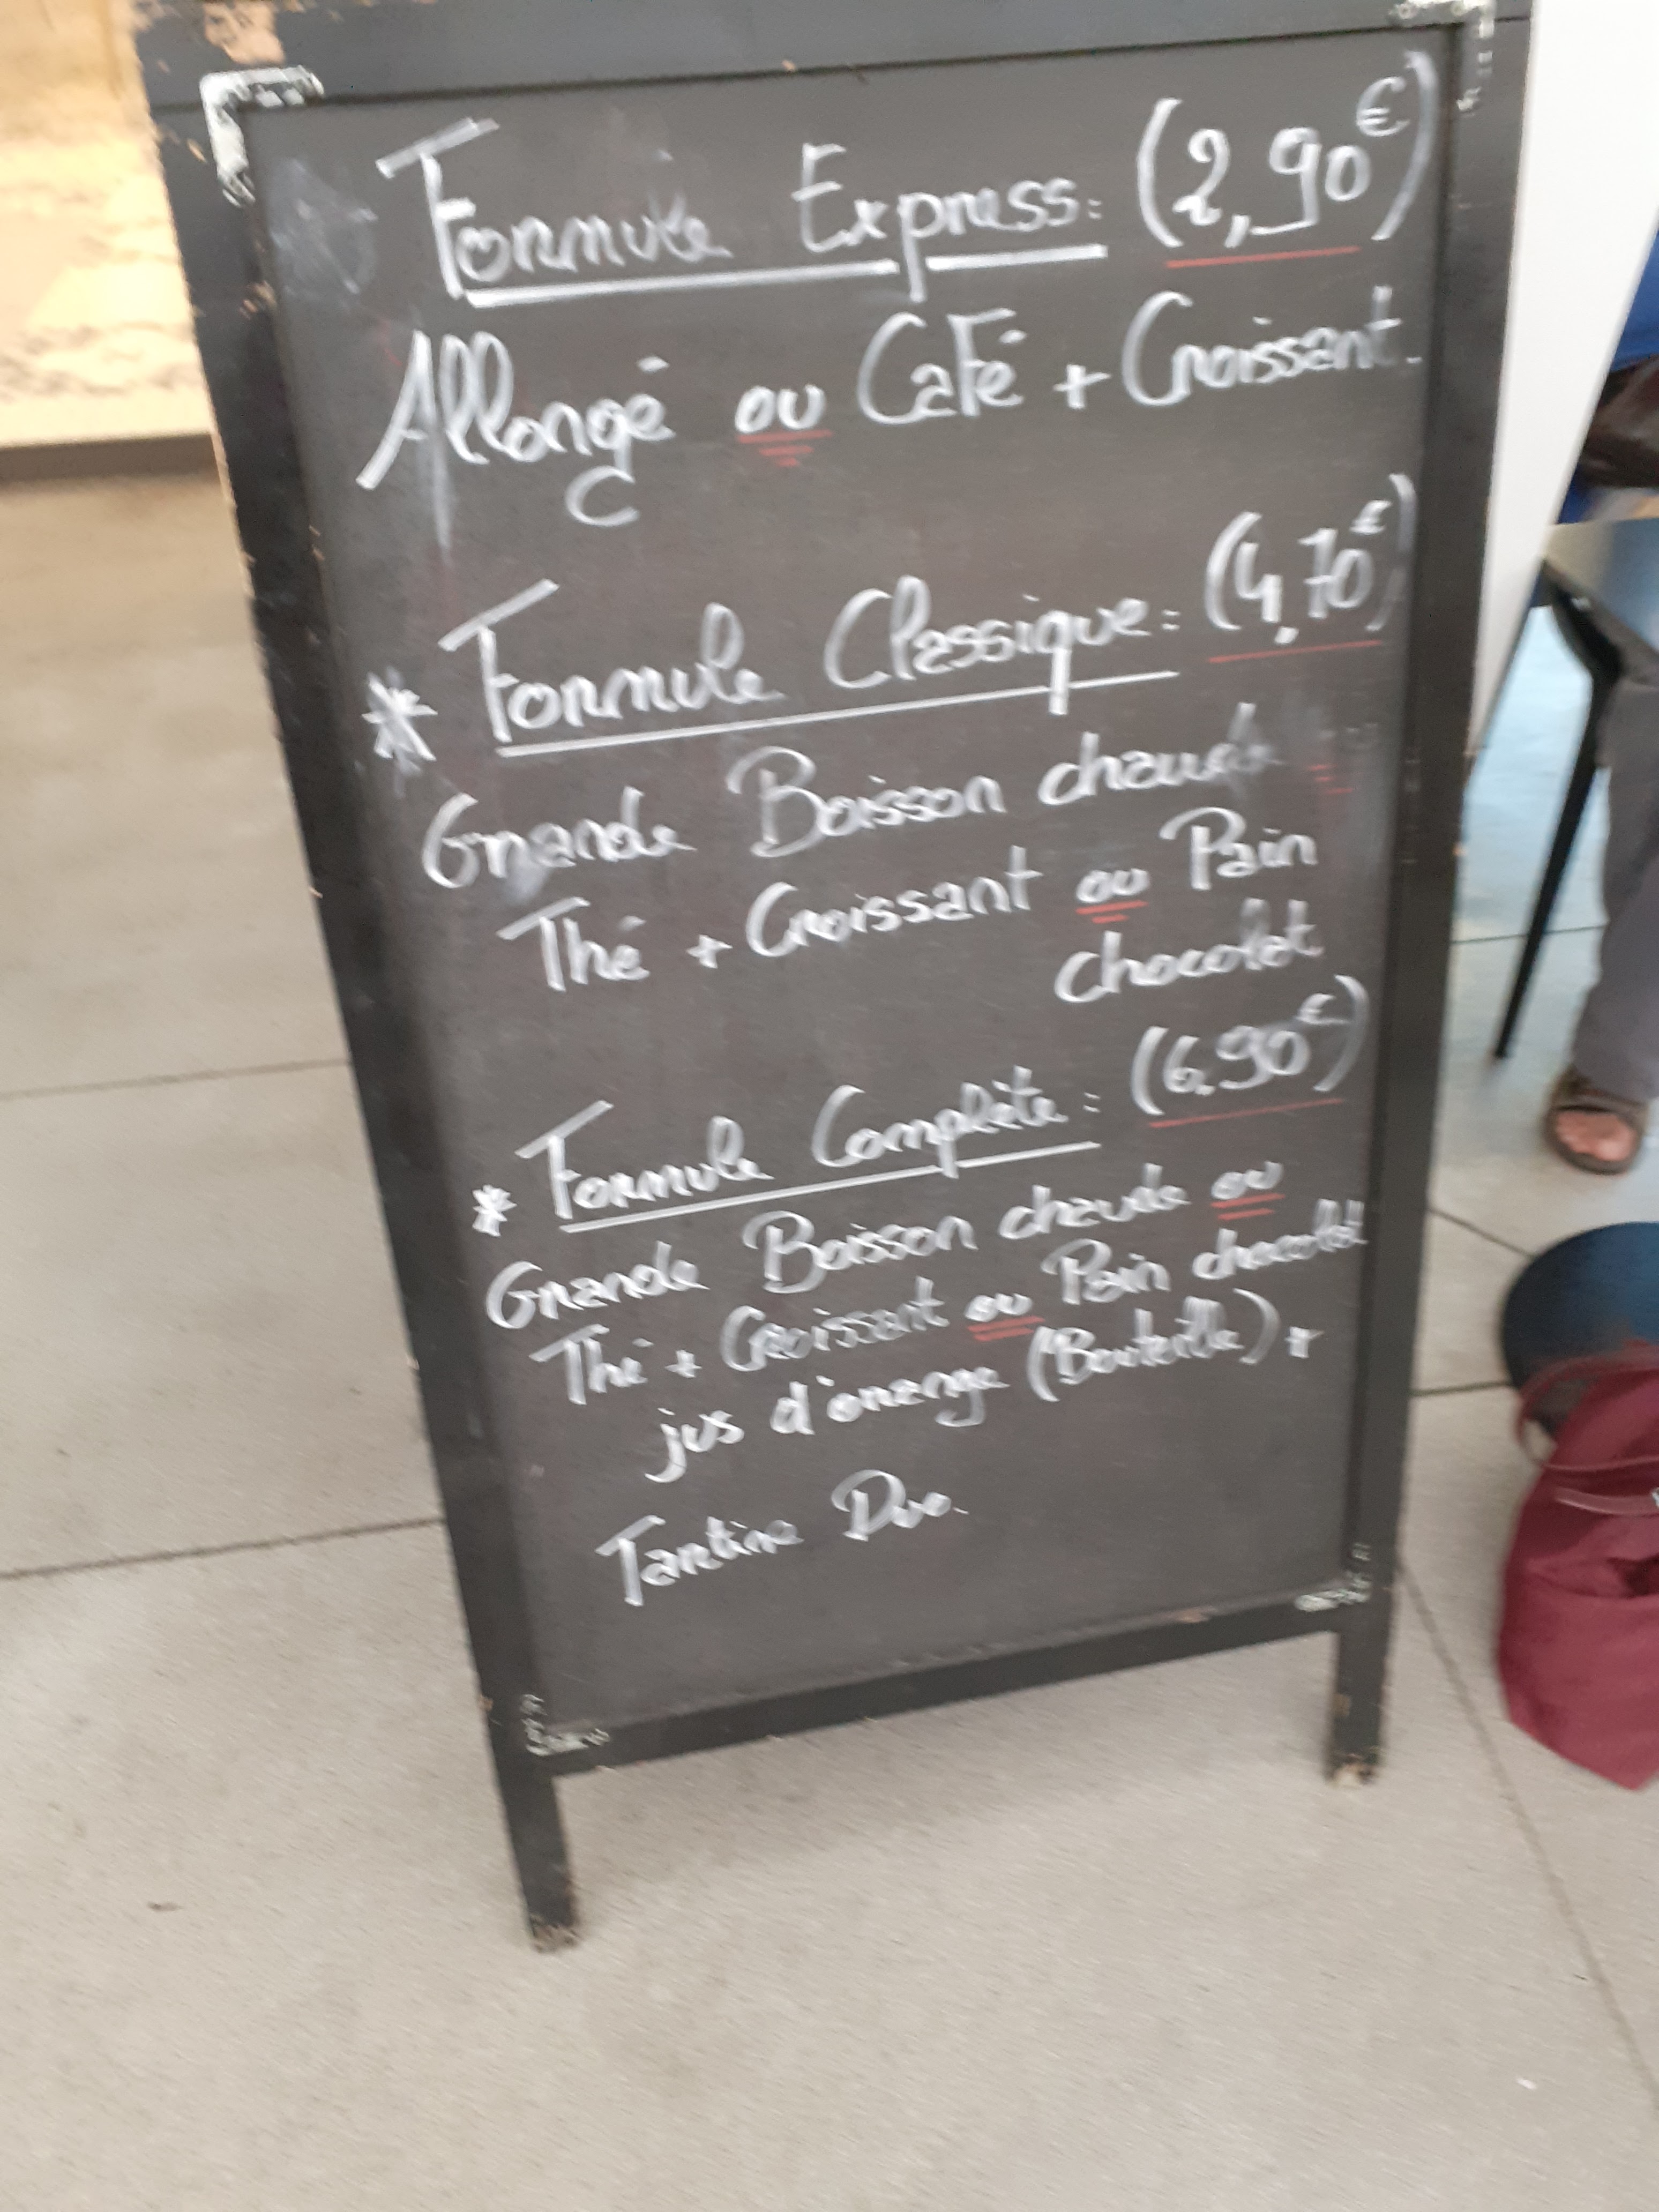 Formule Express: (2,90€)
Allongé ou Café + Croissant.
* Formule Classique: (4,70€)
Grande Boisson chaude
Thé + Croissant ou Pain
chocolat
* Formule Complète: (6,90€)
Grande Boisson chaude ou
Thé + Croissant ou Pain chocolat
jus d'orange (Bouteille) +
Tartine Duo.